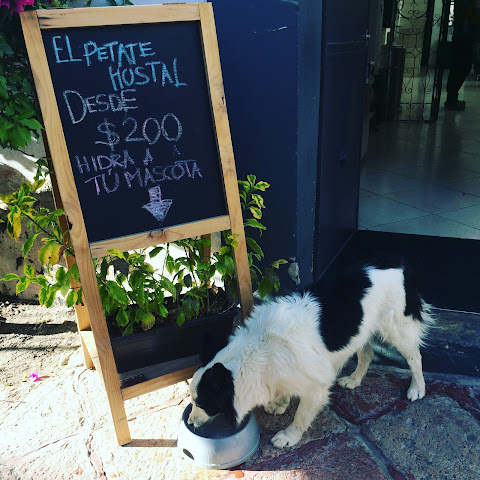 EL PETATE
HOSTAL
DESDE
$200
HIDRA A
TÚ MASCOTA